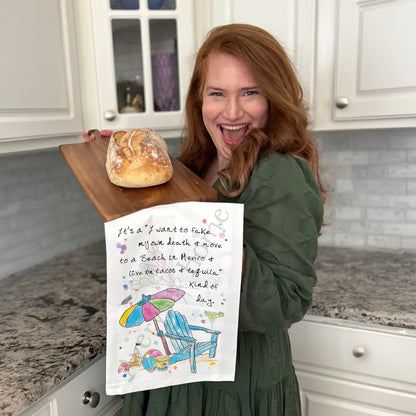 It's a "I want to fake
my own death & move
to a Beach in Mexico &
live on tacos & tequila"
Kind of
day.